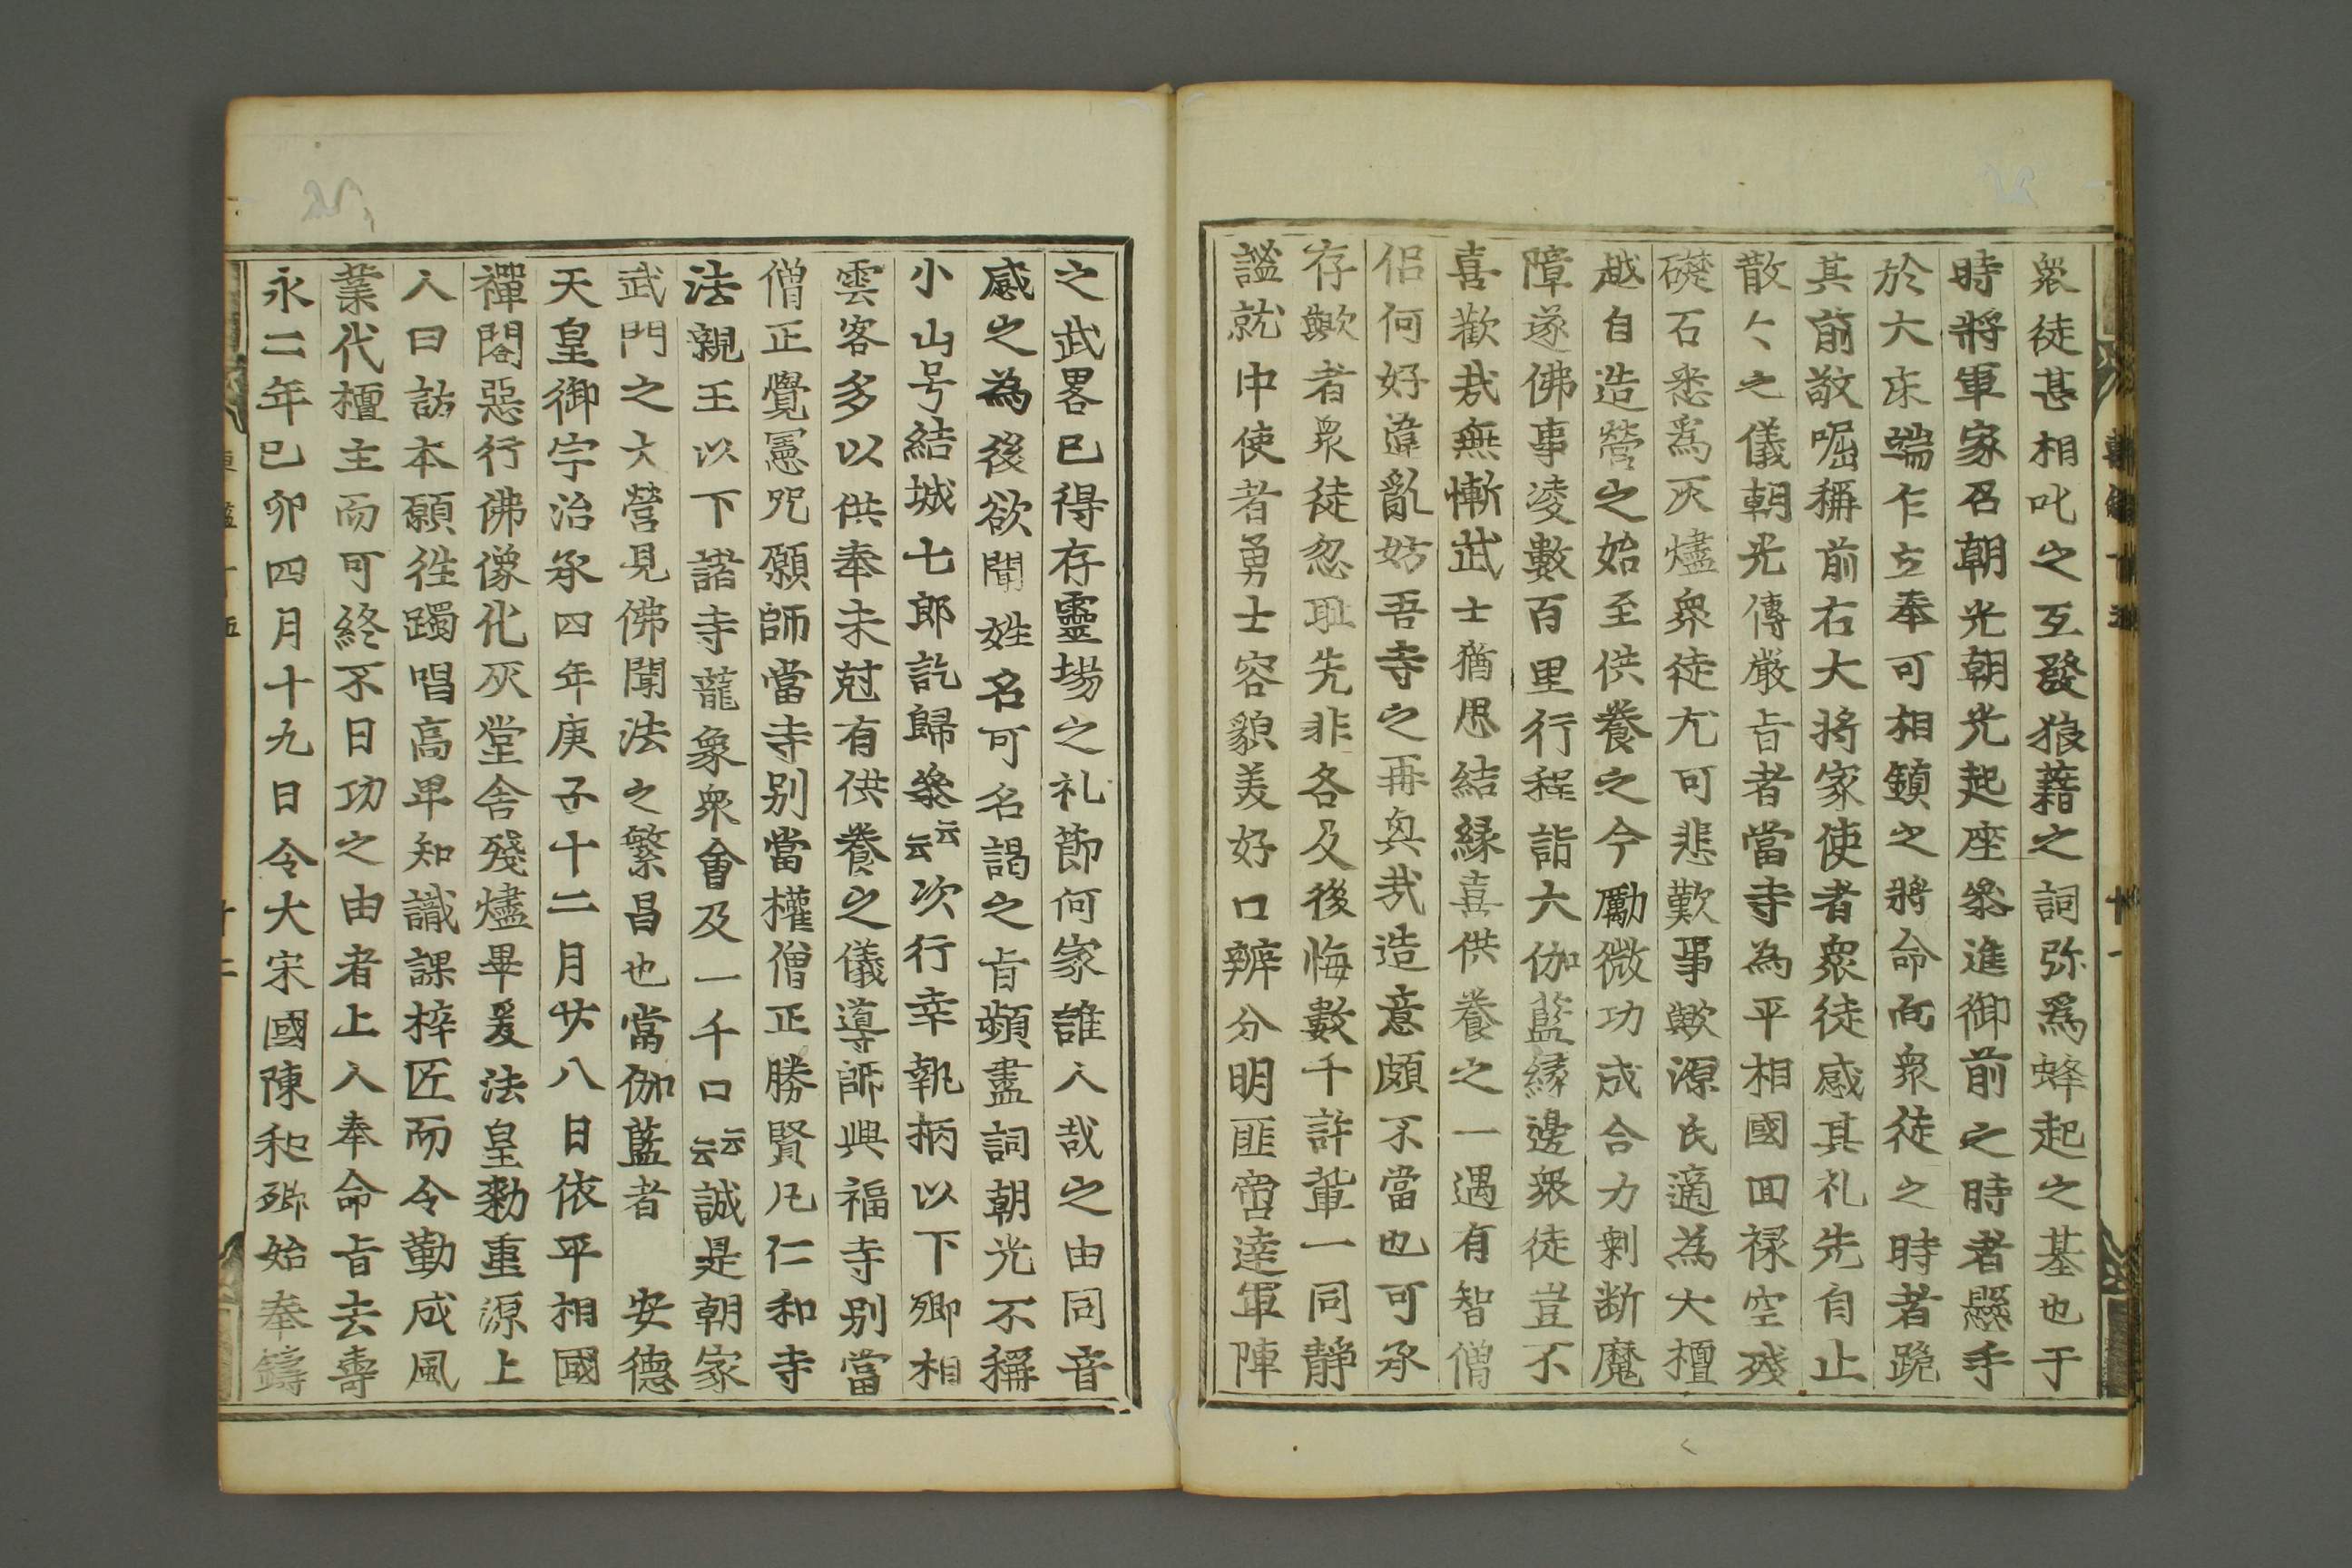 衆徒甚相叱之互發狼藉之詞弥爲蜂起之基也于
時將軍家召朝光朝光起座參進御前之時者懸手
於大床端乍立奉可相鎮之將命而衆徒之時者跪
其前敬崛稱前右大將家使者衆徒感其礼先自止
散々之儀朝光傳嚴旨者當寺為平相國回禄空殘
礎石悉爲灰燼衆徒尤可悲歎事歟源氏適為大檀
越自造營之始至供養之今勵微功成合力剰断魔
障遂佛事凌數百里行程詣大伽藍縁邊衆徒豈不
喜歡哉無慚武士猶思結縁喜供養之一遇有智僧
侶何好違亂妨吾寺之再興哉造意頗不當也可承
存歟者衆徒忽耻先非各及後悔數千許輩一同靜
謐就中使者勇士容貌美好口辨分明匪啻達軍陣
之武畧已得存靈場之礼節何家誰人哉之由同音
感之為後欲聞姓名可名謁之旨頻盡詞朝光不稱
小山号結城七郎訖歸參云云次行幸執柄以下卿相
雲客多以供奉未尅有供養之儀導師興福寺別當
僧正覺憲咒願師當寺別當權僧正勝賢凡仁和寺
法親王以下諸寺龍象衆會及一千口云云誠是朝家
武門之大營見佛聞法之繁昌也當伽藍者　安德
天皇御宇治承四年庚子十二月廿八日依平相國
禪閤惡行佛像化灰堂舎殘燼畢爰法皇勅重源上
人曰訪本願徃躅唱高卑知識課梓匠而令勤成風
業代檀主而可終不日功之由者上人奉命旨去壽
永二年巳卯四月十九日令大宋國陳和卿始奉鑄